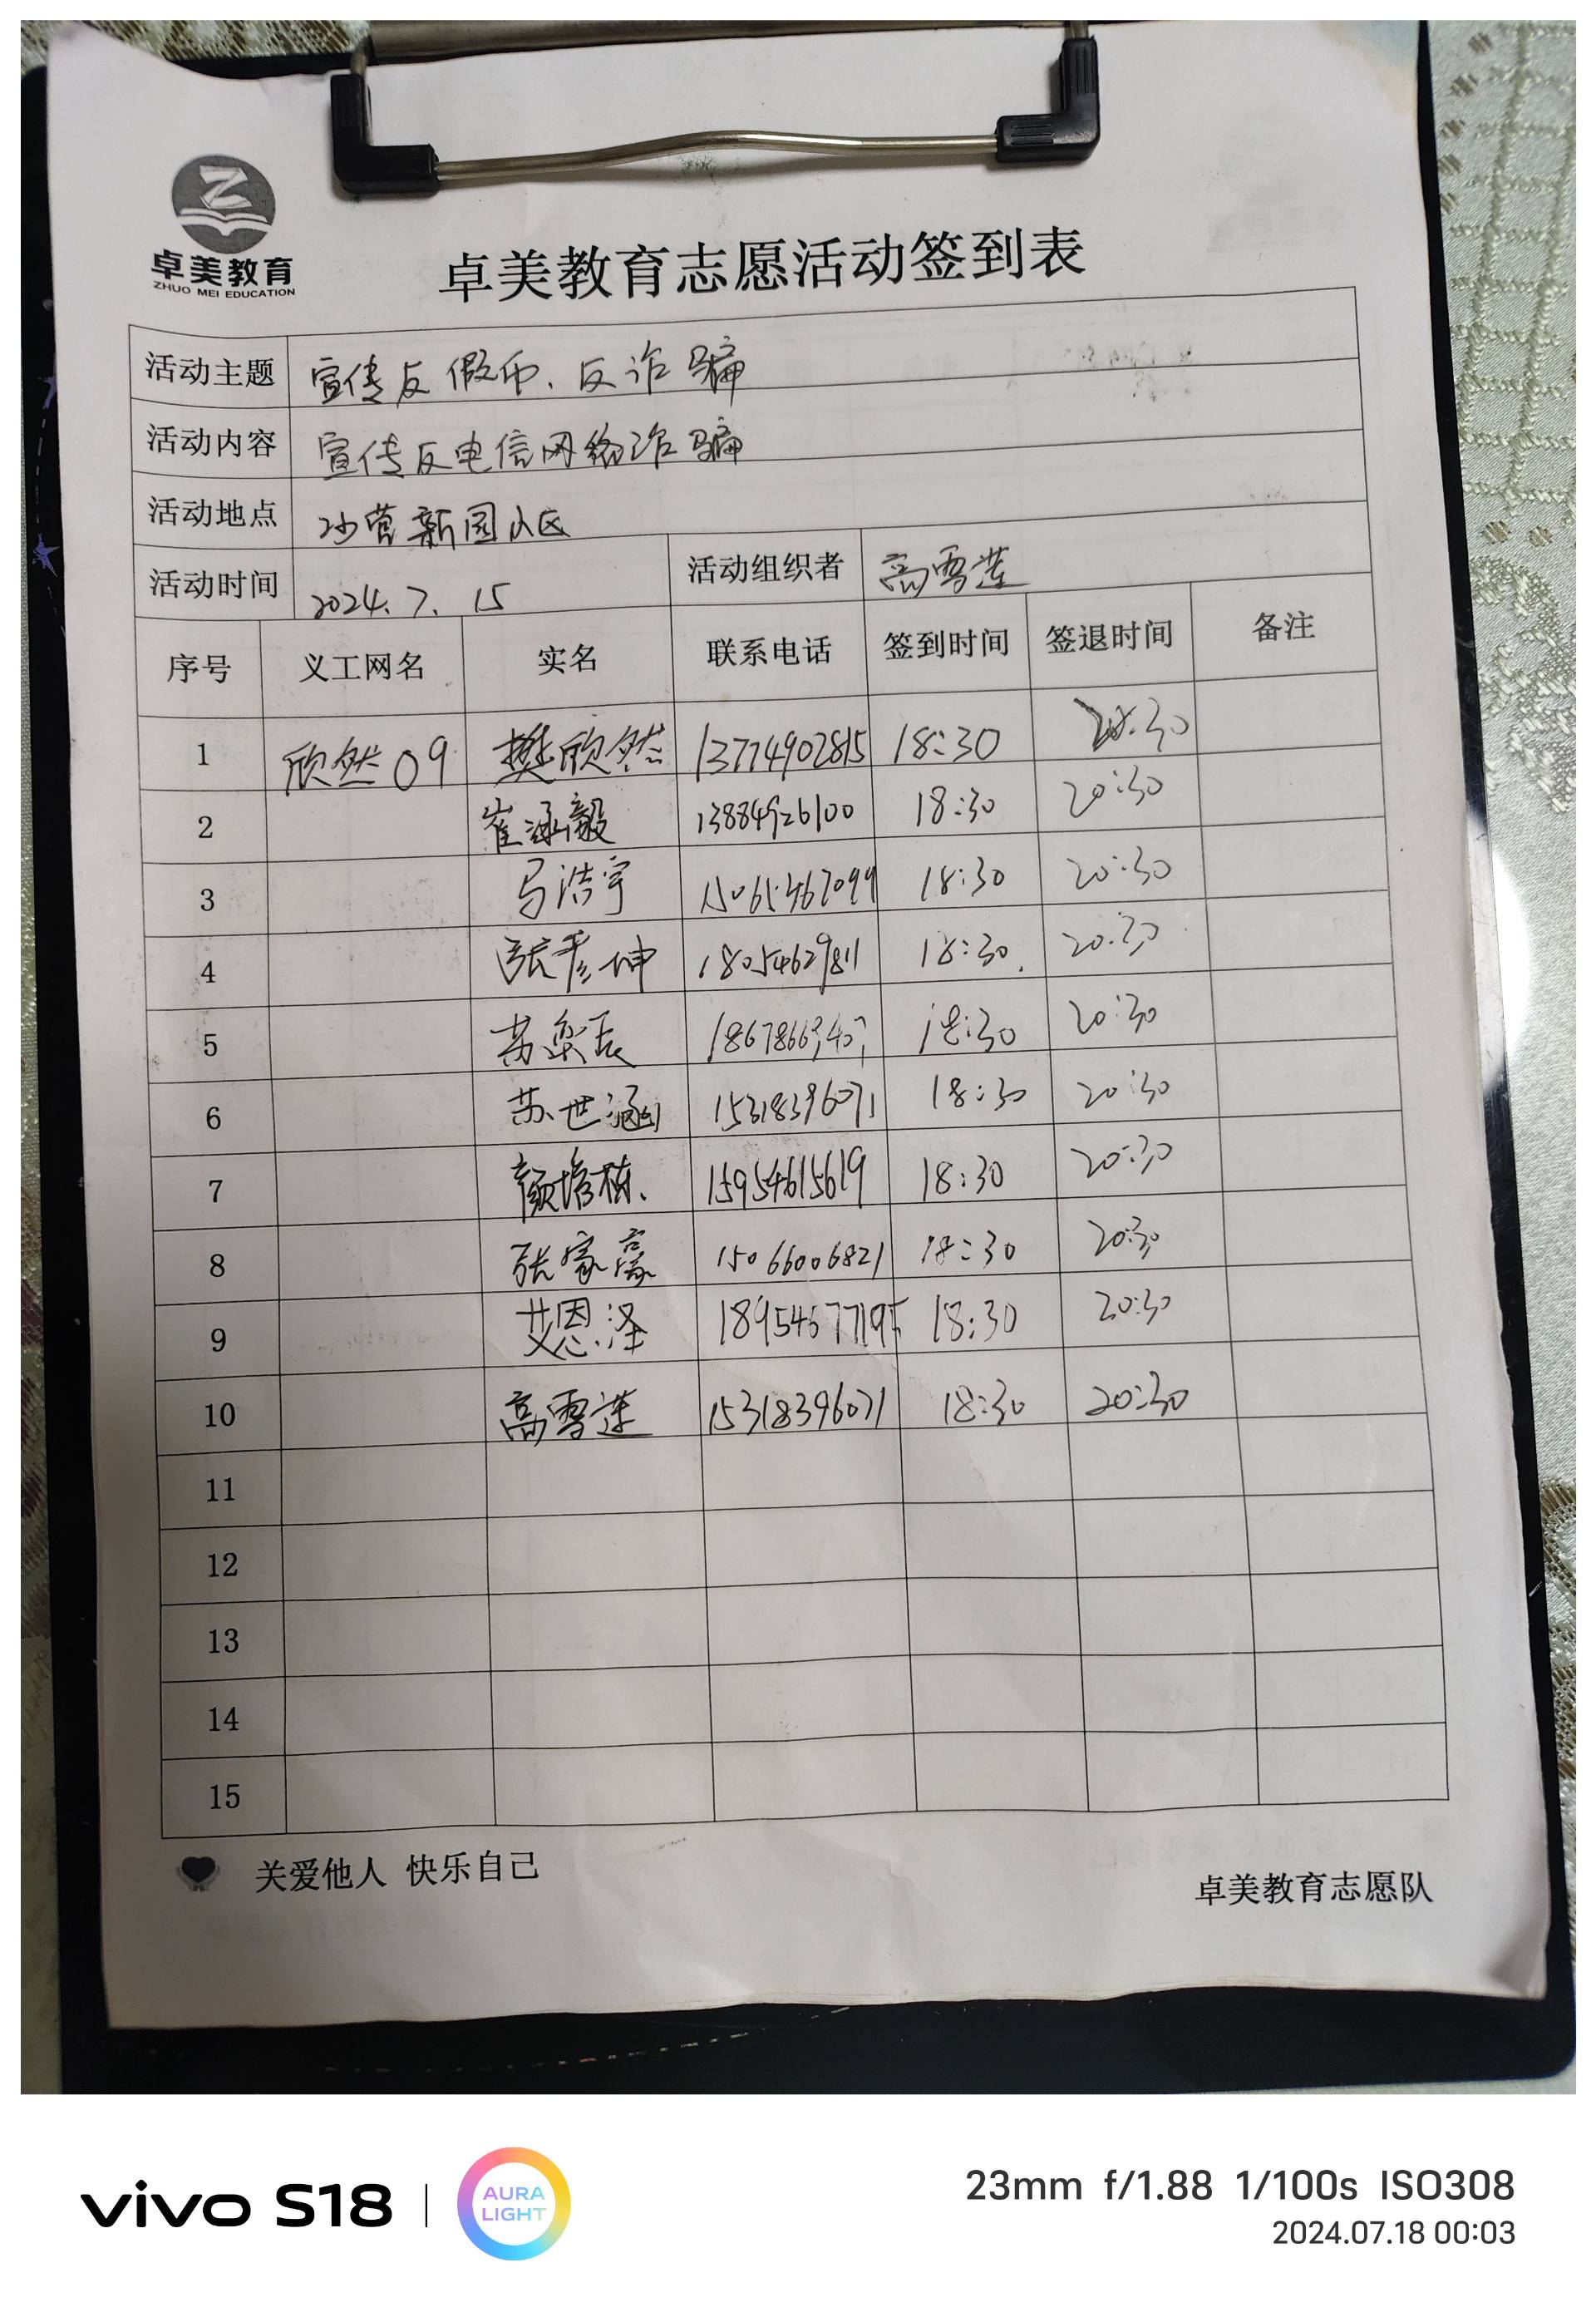 卓美教育
ZHUO MEI EDUCATION
卓美教育志愿活动签到表
活动主题 宣传反假币、反诈骗
活动内容 宣传反电信网络诈骗
活动地点 沙营新园小区
活动时间 2024.7.15 活动组织者 高雪莲
序号 义工网名 实名 联系电话 签到时间 签退时间 备注
1 欣然09 樊欣然 13774902815 18:30 20:30
2 崔涵毅 13884926100 18:30 20:30
3 马浩宇 15065467099 18:30 20:30
4 张彦坤 18054629811 18:30 20:30
5 苏奕辰 18:30 20:30
6 苏世涵 15318396071 18:30 20:30
7 颜培栋 15954615619 18:30 20:30
8 张家赢 15066006821 18:30 20:30
9 艾恩泽 18:30 20:30
10 高雪莲 15318396071 18:30 20:30
11
12
13
14
15
关爱他人 快乐自己
卓美教育志愿队
vivo S18
AURA LIGHT
23mm f/1.88 1/100s ISO308
2024.07.18 00:03